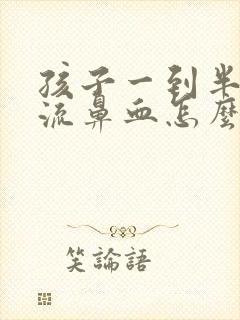 孩子一到半
流鼻血怎麽
笑論語